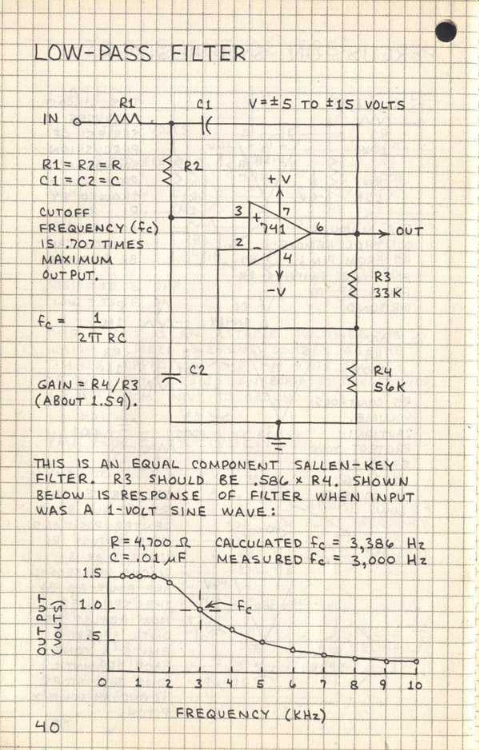 LOW-PASS FILTER
R1
C1
V=±5 TO ±15 VOLTS
IN
R1=R2=R
C1=C2=C
R2
+V
CUTOFF
FREQUENCY (fc)
IS .707 TIMES
MAXIMUM
OUTPUT.
3
+
7
741
6
OUT
2
-
4
-V
R3
33K
fc = 1
2π RC
C2
R4
56K
GAIN = R4/R3
(ABOUT 1.59).
THIS IS AN EQUAL COMPONENT SALLEN-KEY
FILTER. R3 SHOULD BE .586 × R4. SHOWN
BELOW IS RESPONSE OF FILTER WHEN INPUT
WAS A 1-VOLT SINE WAVE:
R = 4,700 Ω CALCULATED fc = 3,386 Hz
C = .01 µF MEASURED fc = 3,000 Hz
OUTPUT
(VOLTS)
1.5
1.0
.5
fc
0 1 2 3 4 5 6 7 8 9 10
FREQUENCY (KHz)
40